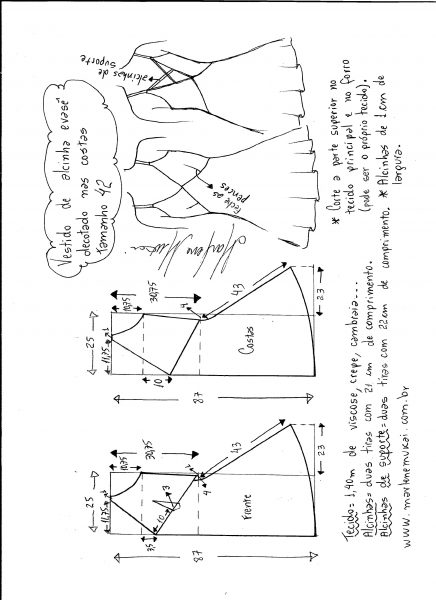 Vestido de alcinha evasê
decotado nas costas
Tamanho 42
alcinhas de
suporte
Feche as
pences
* Corte a parte superior no
tecido principal e no forro
(pode ser o próprio tecido).
* Alcinhas de 1cm de
largura.
25
11,75
10,75
30,75
10
43
23
87
Costas
25
11,75
10,75
30,75
3
10
7,5
4
43
23
87
Frente
Tecido = 1,40m de viscose, crepe, cambraia...
Alcinhas = duas tiras com 21 cm de comprimento.
Alcinhas de suporte = duas tiras com 22cm de comprimento.
www.marlenemukai.com.br